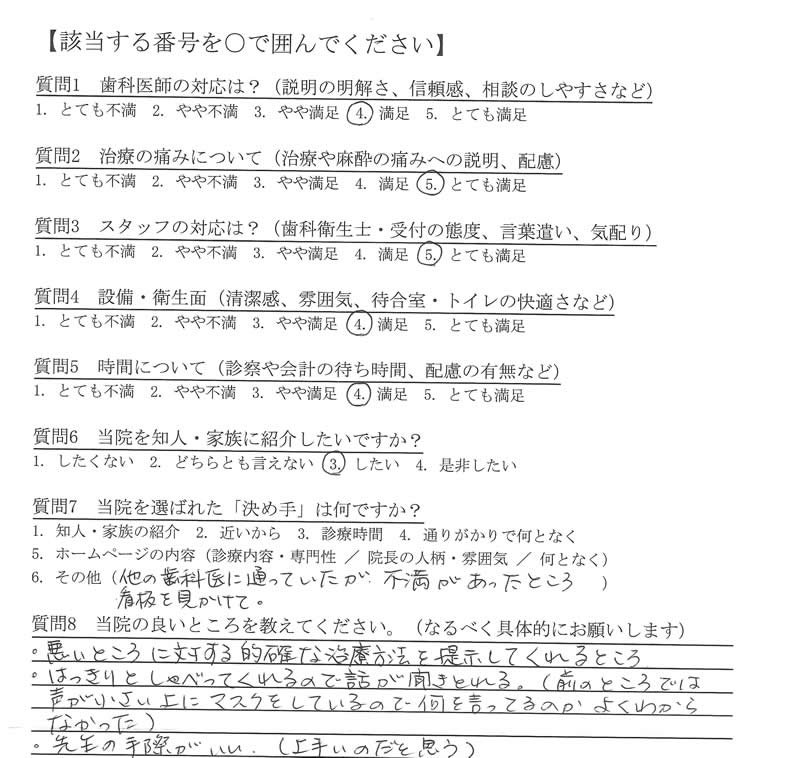 【該当する番号を○で囲んでください】
質問1 歯科医師の対応は？（説明の明解さ、信頼感、相談のしやすさなど）
1. とても不満 2. やや不満 3. やや満足 4. 満足 5. とても満足
質問2 治療の痛みについて（治療や麻酔の痛みへの説明、配慮）
1. とても不満 2. やや不満 3. やや満足 4. 満足 5. とても満足
質問3 スタッフの対応は？（歯科衛生士・受付の態度、言葉遣い、気配り）
1. とても不満 2. やや不満 3. やや満足 4. 満足 5. とても満足
質問4 設備・衛生面（清潔感、雰囲気、待合室・トイレの快適さなど）
1. とても不満 2. やや不満 3. やや満足 4. 満足 5. とても満足
質問5 時間について（診察や会計の待ち時間、配慮の有無など）
1. とても不満 2. やや不満 3. やや満足 4. 満足 5. とても満足
質問6 当院を知人・家族に紹介したいですか？
1. したくない 2. どちらとも言えない 3. したい 4. 是非したい
質問7 当院を選ばれた「決め手」は何ですか？
1. 知人・家族の紹介 2. 近いから 3. 診療時間 4. 通りがかりで何となく
5. ホームページの内容（診療内容・専門性 ／ 院長の人柄・雰囲気 ／ 何となく）
6. その他（他の歯科医に通っていたが 不満があったところ ）
看板を見かけて。
質問8 当院の良いところを教えてください。（なるべく具体的にお願いします）
・悪いところに対する的確な治療方法を提示してくれるところ
・はっきりとしゃべってくれるので話が聞きとれる。（前のところでは
声が小さい上にマスクをしているので何を言ってるのかよくわから
なかった）
・先生の手際がいい．（上手いのだと思う）